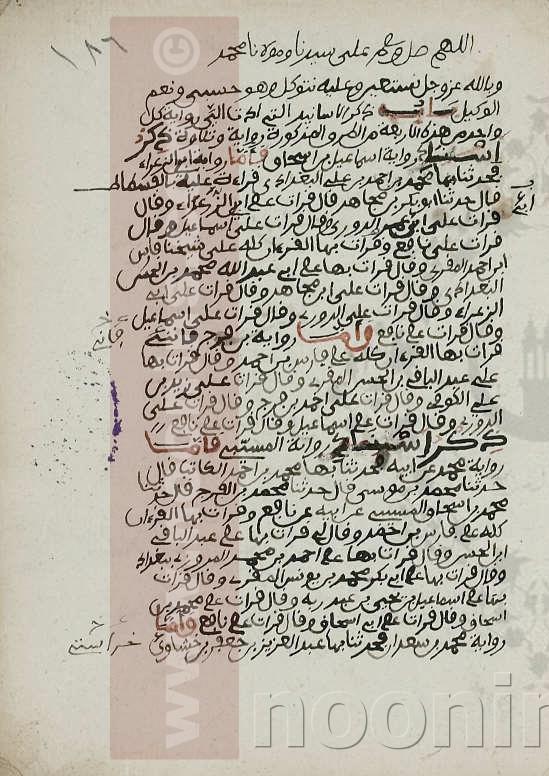 ١٨٦
اللهم صل وسلم على سيدنا ومولانا محمد
وبالله عز وجل نستعين وعليه نتوكل وهو حسبي ونعم
الوكيل باب ذكر الاسانيد التي ادت الي رواية كل
واحد من هذه الاربعة من الطرو المذكورة رواية وتلاوة ذكر
اسناد رواية اسماعيل بن اسحاق فاما رواية ابي الزعراء
فحدثنا بها محمد بن احمد بن علي البغدادي قراءة عليه بالفسطاط
قال حدثنا ابو بكر بن مجاهد قال قرات على ابي الزعراء وقال
قرات على ابي عمر الدوري وقال قرات على اسماعيل وقال
قرات على نافع وقرات بها القرءان كله على شيخنا فارس
ابن احمد المقرئ وقال قرات بها على ابي عبد الله محمد بن الحسن
البغدادي وقال قرات على ابن مجاهد وقال قرات على ابي
الزعراء وقال قرات على الدوري وقال قرات على اسماعيل
وقال قرات على نافع واما رواية بن فرح فانني
قرات بها القرءان كله على فارس بن احمد وقال قرات بها
على عبد الباقي بن الحسن المقرئ وقال قرات على زيد بن
علي الكوفي وقال قرات على احمد بن فرح وقال قرات على
الدوري وقال قرات على اسماعيل وقال قرات على نافع
ذكر اسناد رواية المسيبي فاما
رواية محمد عن ابيه فحدثنا بها محمد بن احمد الكاتب قال
حدثنا محمد بن موسى قال حدثنا محمد بن الفرج قال حدثنا
محمد بن اسحاق المسيبي عن ابيه عن نافع وقرات بها القرءان
كله على فارس بن احمد وقال لي قرات بها على عبد الباقي
ابن الحسن وقال قرات بها على احمد بن محمد المروزي ببغداد
وقال قرات بها على ابي بكر محمد بن يونس المقرئ وقال قرات
بها على اسماعيل بن يحيى بن عبد ربه وقال قرات على محمد بن
اسحاق وقال قرات على ابي اسحاق وقال قرات على نافع واما
رواية محمد بن سعدان فحدثنا بها عبد العزيز بن جعفر بن خشاوي
www.
noonin